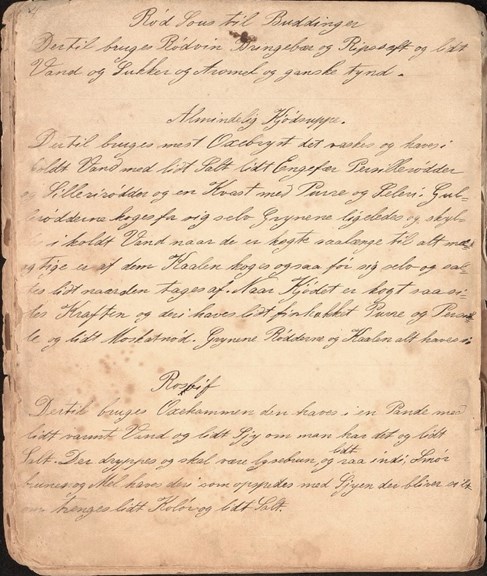 Rød Sous til Buddinger
Dertil bruges Rødvin Bringebær og Ripssaft og lidt
Vand og Sukker og ganske tynd.
Almindelig Kjødsuppe.
Dertil bruges mest Oxebryst det vaskes og haves i
koldt Vand med lidt Salt lidt Engefær Persillerødder
og Sillerirødder og en Kvast med Purre og Selleri. Gul-
rødderne koges for sig selv Grynene ligeledes og skyl-
les i koldt Vand naar de er kogte saalænge til alt
er af dem Kaalen koges ogsaa for sig selv og sal-
tes lidt naar den tages af. Naar Kjødet er kogt saa si-
les Kraften og deri haves lidt finhakket Purre og Persil-
le, og lidt Moskatnød. Grynene Rødderne og Kaalen alt haves i.
Rosbif
Dertil bruges Oxekammen den haves i en Pande med
lidt varmt Vand og lidt Sjy om man har det og lidt
Salt. Den dryppes og skal være lysebrun, og lidt raa indi, Smør
brunes og Mel haves deri som opspædes med Sjyen der bliver
lidt Kolør og lidt Salt.